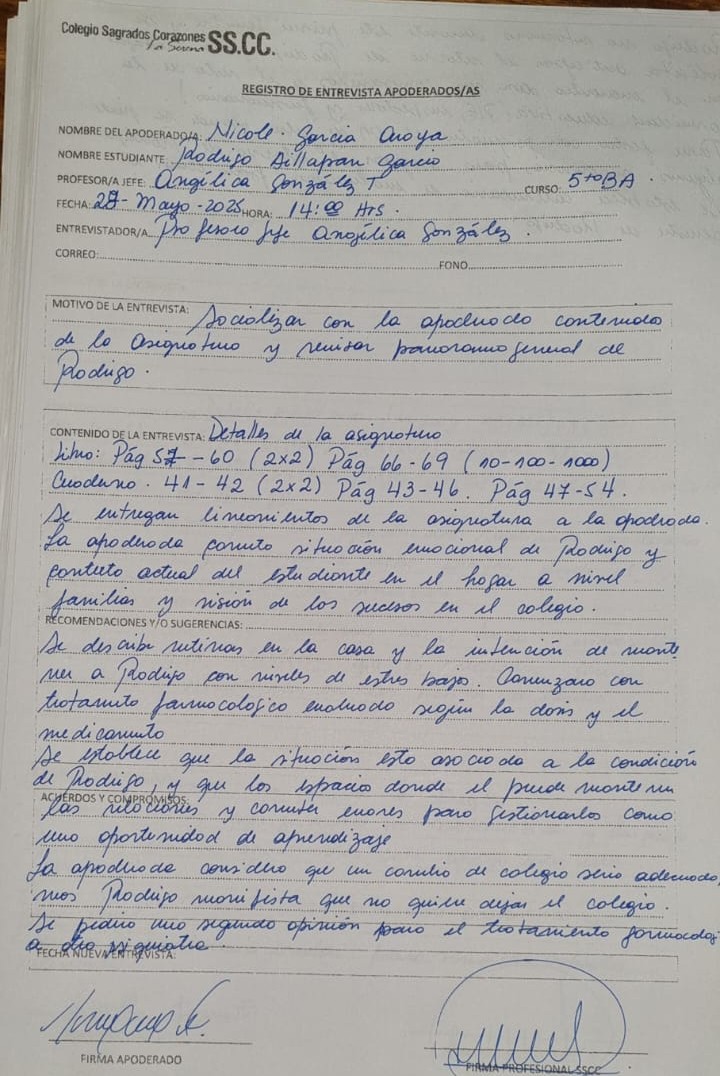 Colegio Sagrados Corazones SS.CC.
La Serena
REGISTRO DE ENTREVISTA APODERADOS/AS
NOMBRE DEL APODERADO/A: Nicole Garcia Araya
NOMBRE ESTUDIANTE: Rodrigo Aillapan Garcia
PROFESOR/A JEFE: Angélica González T CURSO: 5to BA.
FECHA: 28-Mayo-2025 HORA: 14:00 Hrs.
ENTREVISTADOR/A: Profesora jefe Angélica González.
CORREO: FONO
MOTIVO DE LA ENTREVISTA: Socializar con la apoderada contenidos
de la asignatura y revisar panorama general de
Rodrigo.
CONTENIDO DE LA ENTREVISTA: Detalles de la asignatura
Libro: Pág 57-60 (2x2) Pág 66-69 (10-100-1000)
Cuaderno. 41-42 (2x2) Pág 43-46. Pág 47-54.
Se entregan lineamientos de la asignatura a la apoderada.
La apoderada comenta situación emocional de Rodrigo y
contexto actual del estudiante en el hogar a nivel
familiar y visión de los sucesos en el colegio.
RECOMENDACIONES Y/O SUGERENCIAS:
Se describe rutinas en la casa y la intención de mante
ner a Rodrigo con niveles de estres bajos. Comenzara con
tratamiento farmacológico evaluado según la dosis y el
medicamento
Se establece que la situación esta asociada a la condición
de Rodrigo, y que los espacios donde el puede mantener
ACUERDOS Y COMPROMISOS:
las relaciones y cometer errores para gestionarlos como
una oportunidad de aprendizaje
La apoderada considera que un cambio de colegio seria adecuado,
mas Rodrigo manifiesta que no quiere dejar el colegio.
Se pedira una segunda opinión para el tratamiento farmacolog
a otro siquiatra.
FECHA NUEVA ENTREVISTA:
FIRMA APODERADO
FIRMA PROFESIONAL SSCC